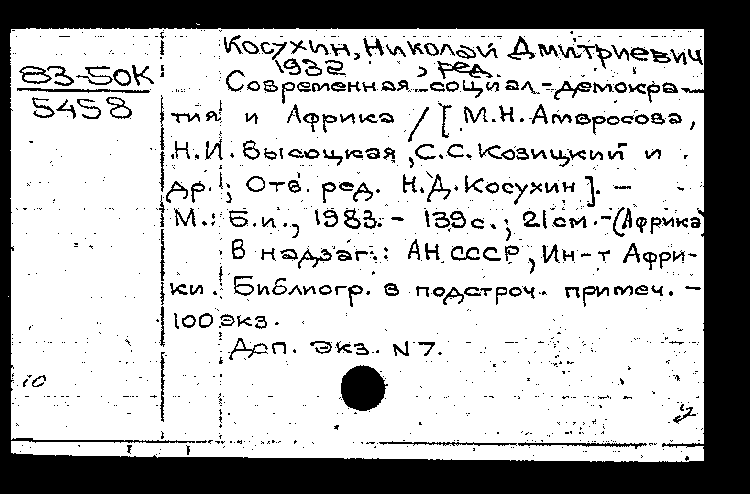 Косухин, Николай Дмитриевич
1932 , ред.
83-50К
5458
Современная социал-демокра-
тия и Африка / [М.Н. Амвросова,
Н.И. Высоцкая, С.С. Козицкий и
др.; Отв. ред. Н.Д. Косухин]. –
М.: Б.и., 1983. - 139 с.; 21 см. - (Африка)
В надзаг.: АН СССР, Ин-т Афри-
ки. Библиогр. в подстроч. примеч. –
100 экз.
Доп. экз. N 7.
10